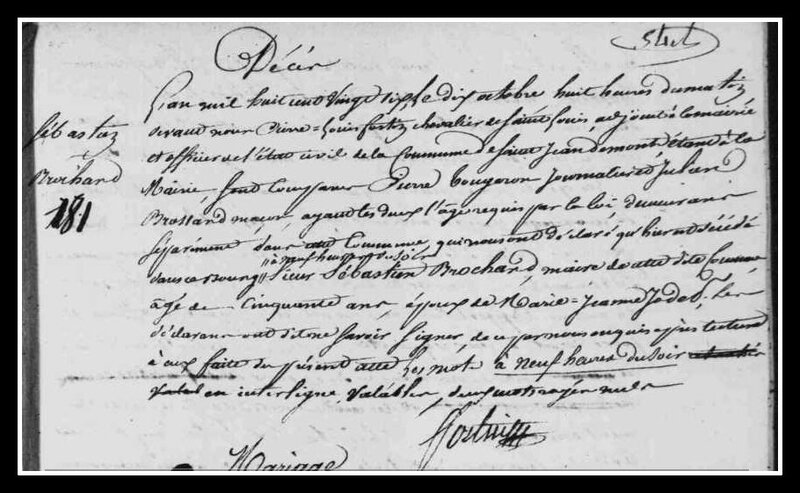 Décès
L'an mil huit cent vingt six le dix octobre huit heures du matin
devant nous Pierre=Louis Fortin chevalier de Saint Louis, adjoint à la mairie
et officier de l'état civil de la Commune de Saint Jean de mont étand à la
Mairie, sont comparus Pierre Bougeron journalier et Julien
Sébastien
Brochard
181
Brossard maçon, ayant les deux l'âge requis par la loi demeurans
séparément dans cette Commune, qui nous ont déclaré qu'hier est décédé
à neuf heures du soir
dans ce Bourg Sieur Sébastien Brochard, maire de cette dite Commune
âgé de cinquante ans, époux de Marie-Jeanne Jodet, les
déclarans ont dit ne savoir signer, de ce par nous enquis après lecture
à eux faite du présent acte les mots à neuf heures du soir
en interligne valables, deux mots rayés nuls
Fortin
Mariage